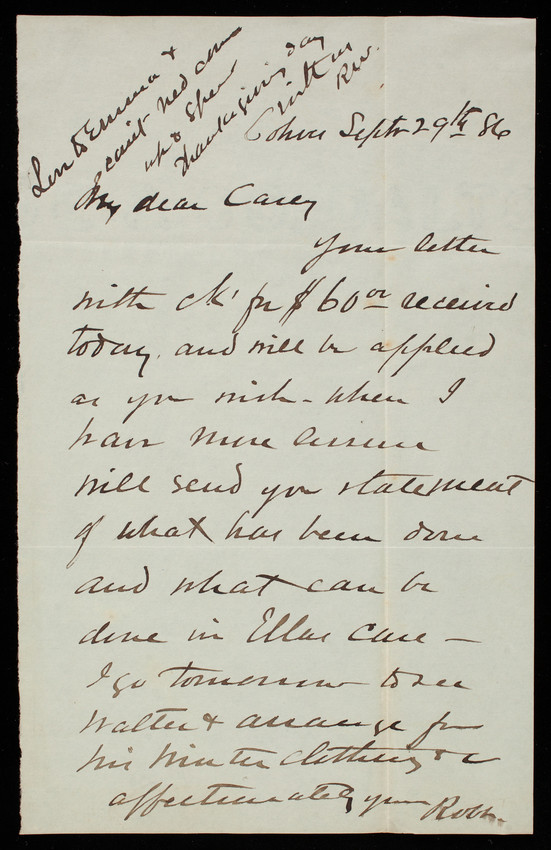 Love to Emma &
can't Ned come
up & spend
Thanksgiving day
with us
RW.
Cohoes Septr 29th 86
My dear Casey
Your letter
with ck' for $60 00 received
today. and will be applied
as you wish - when I
have more leisure
will send you statement
of what has been done
and what can be
done in Ellas case -
I go tomorrow to see
Walter & arrange for
his Winter clothing &c
affectionately yours Robt.